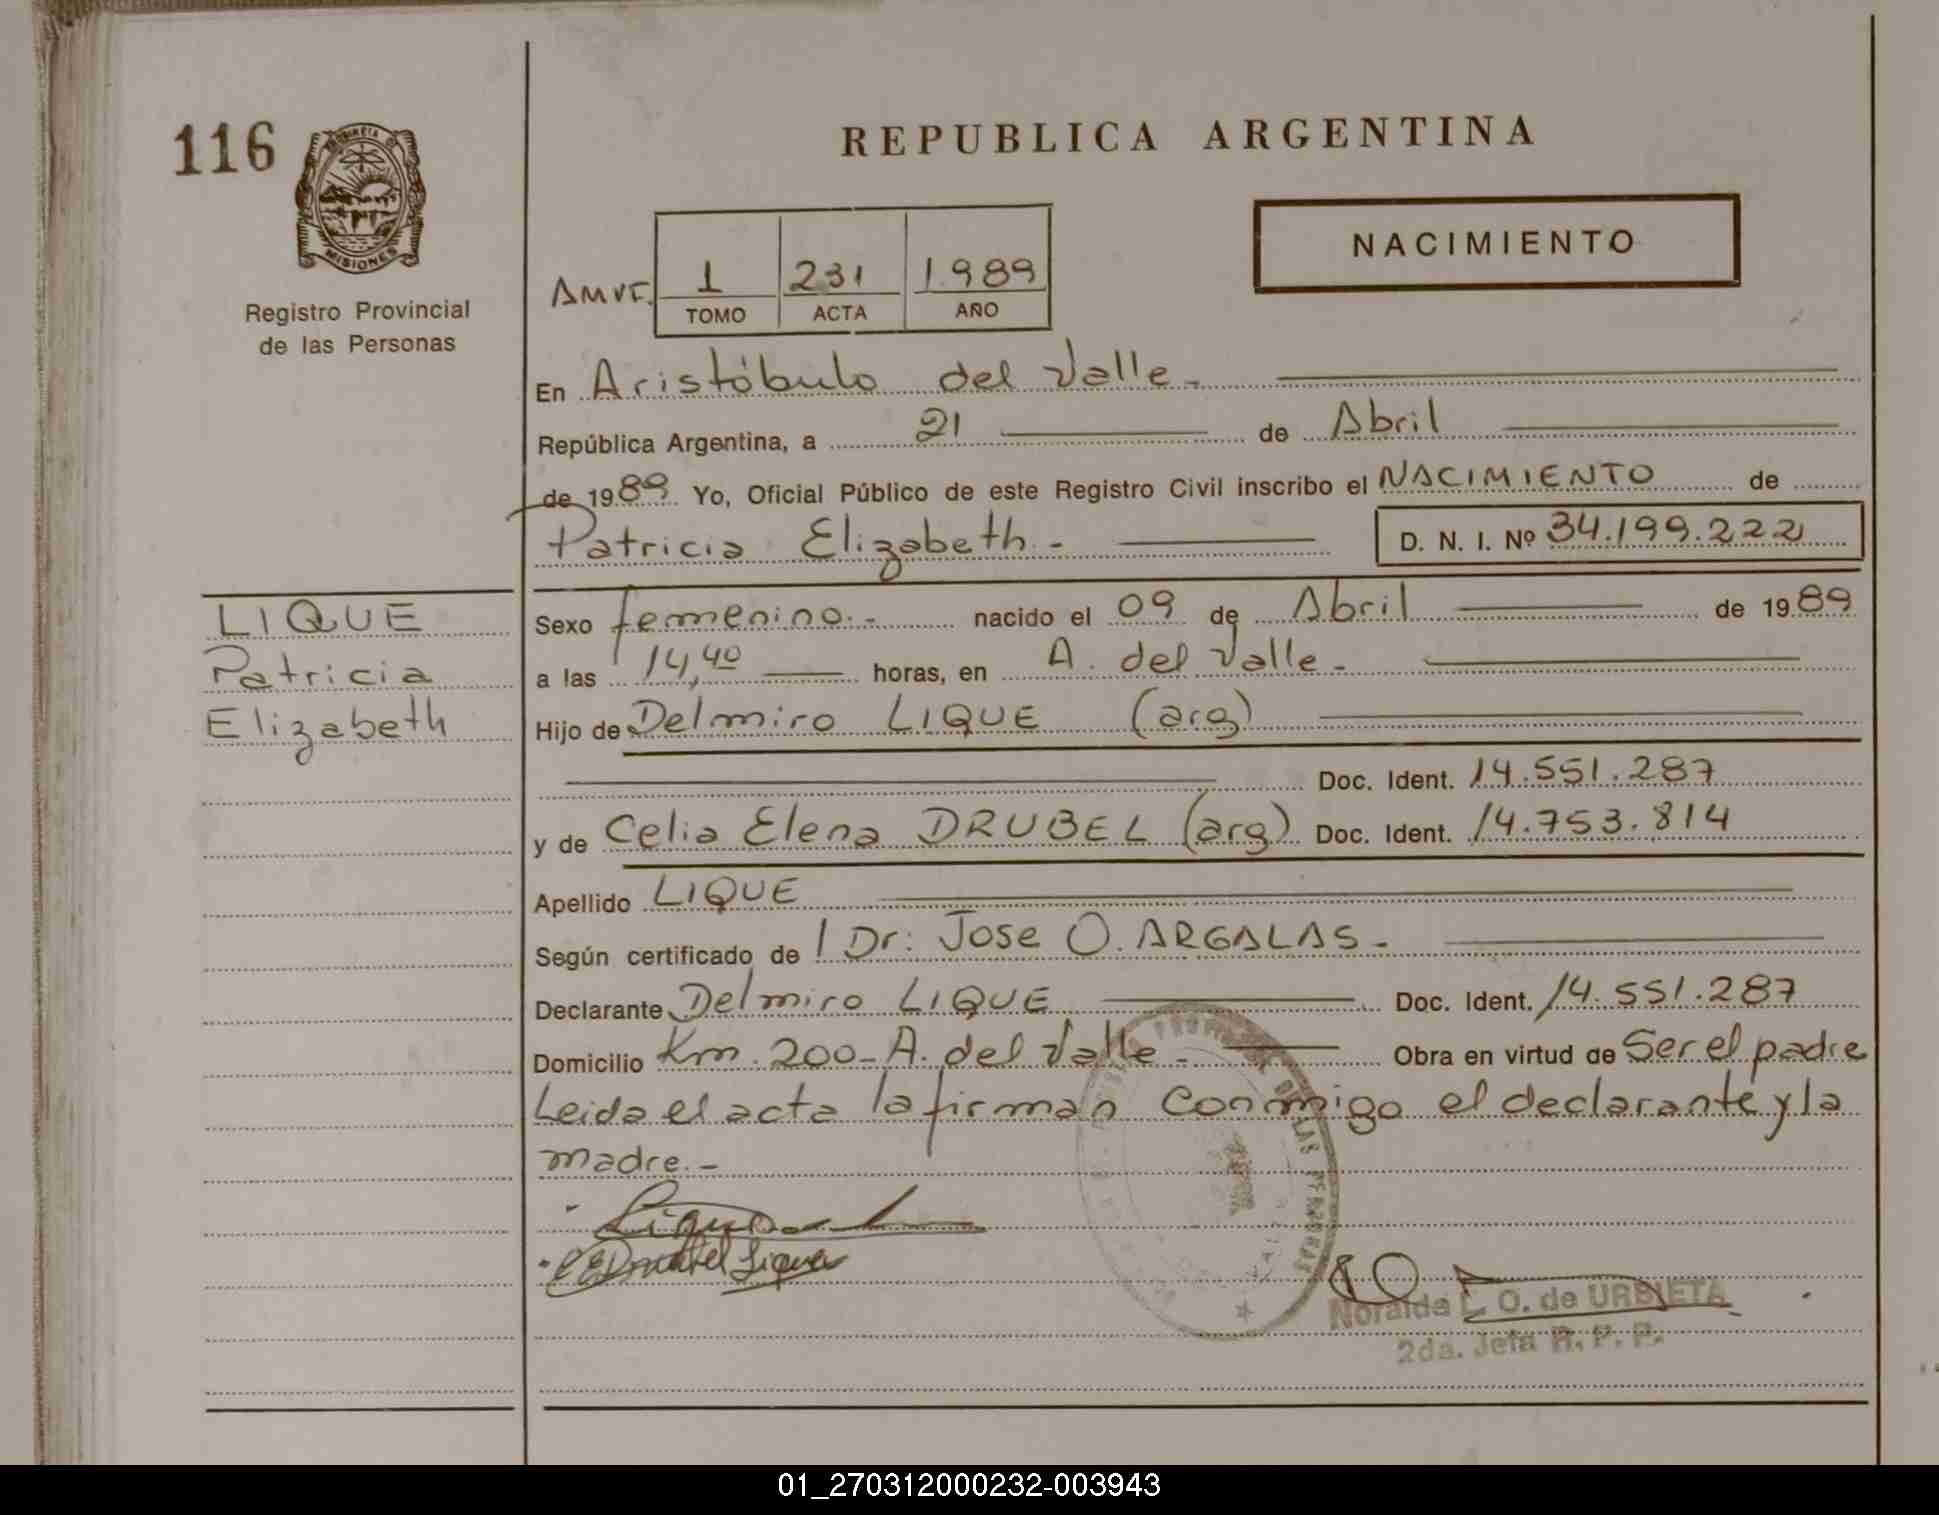 116
MISIONES
Registro Provincial
de las Personas
REPUBLICA ARGENTINA
NACIMIENTO
1 231 1.989
TOMO ACTA AÑO
En Aristóbulo del Valle.-
República Argentina, a 21 de Abril
de 1989 Yo, Oficial Público de este Registro Civil inscribo el NACIMIENTO de
Patricia Elizabeth.-
D. N. I. Nº 34.199.222
LIQUE
Patricia
Elizabeth
Sexo femenino.- nacido el 09 de Abril de 1989
a las 14,40 horas, en A. del Valle.-
Hijo de Delmiro LIQUE (arg)
Doc. Ident. 14.551.287
y de Celia Elena DRUBEL (arg) Doc. Ident. 14.753.814
Apellido LIQUE
Según certificado de / Dr: Jose O. ARGALAS.-
Declarante Delmiro LIQUE Doc. Ident. 14.551.287
Domicilio Km. 200-A. del Valle.- Obra en virtud de Ser el padre
Leida el acta la firman conmigo el declarante y la
madre.-
Noraida L. O. de URBIETA
2da. Jefa R. P. P.
01_270312000232-003943